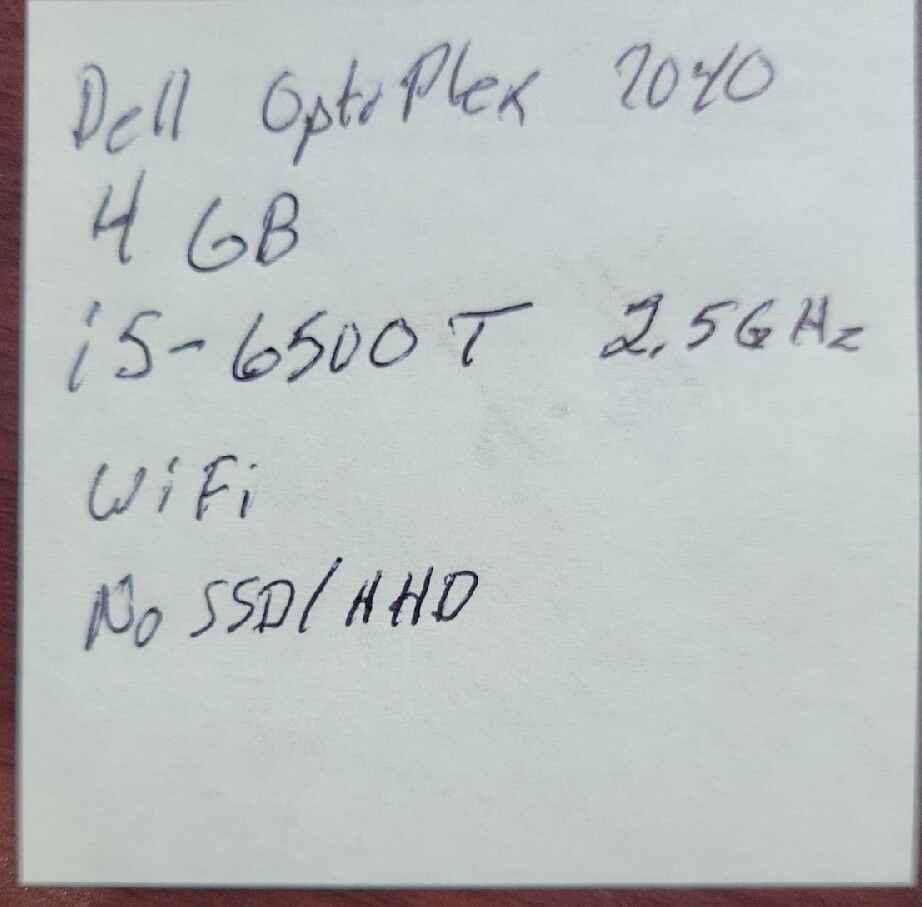 Dell OptiPlex 7040
4 GB
i5-6500T 2.5GHz
WiFi
No SSD/HHD